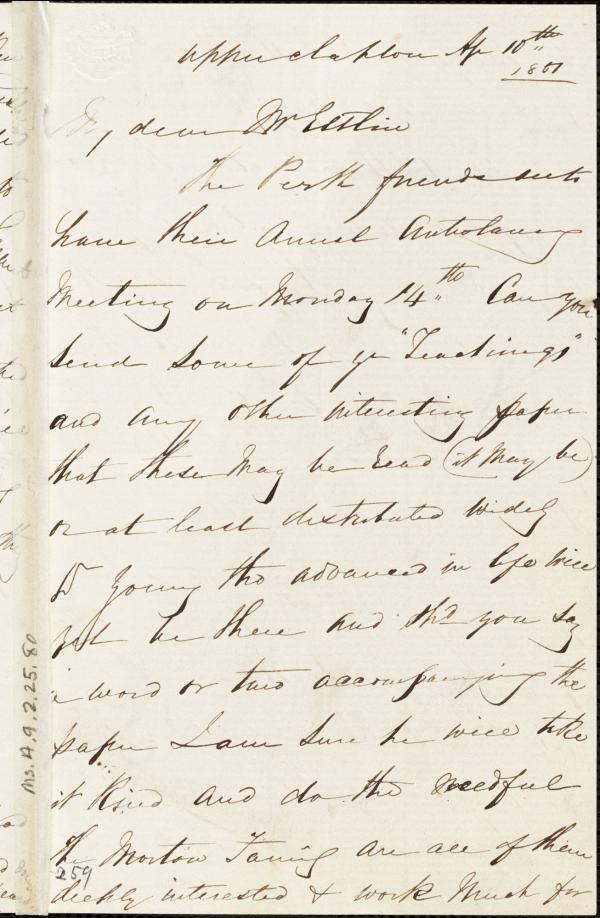 Upper Clapton Ap 10th
1851
My dear Mr Estlin
The Perth friends
have their Annual Antislavery
Meeting on Monday 14th Can you
send some of yr "Teachings"
and any other interesting paper
that these may be read (it may be)
or at least distributed widely
Dr Young tho advanced in life will
yet be there and shd you say
a word or two accompanying the
paper I am sure he will take
it kind and do the needful
The Morton Family are all of them
deeply interested & work much for
Ms. A.9.2.25.80
259